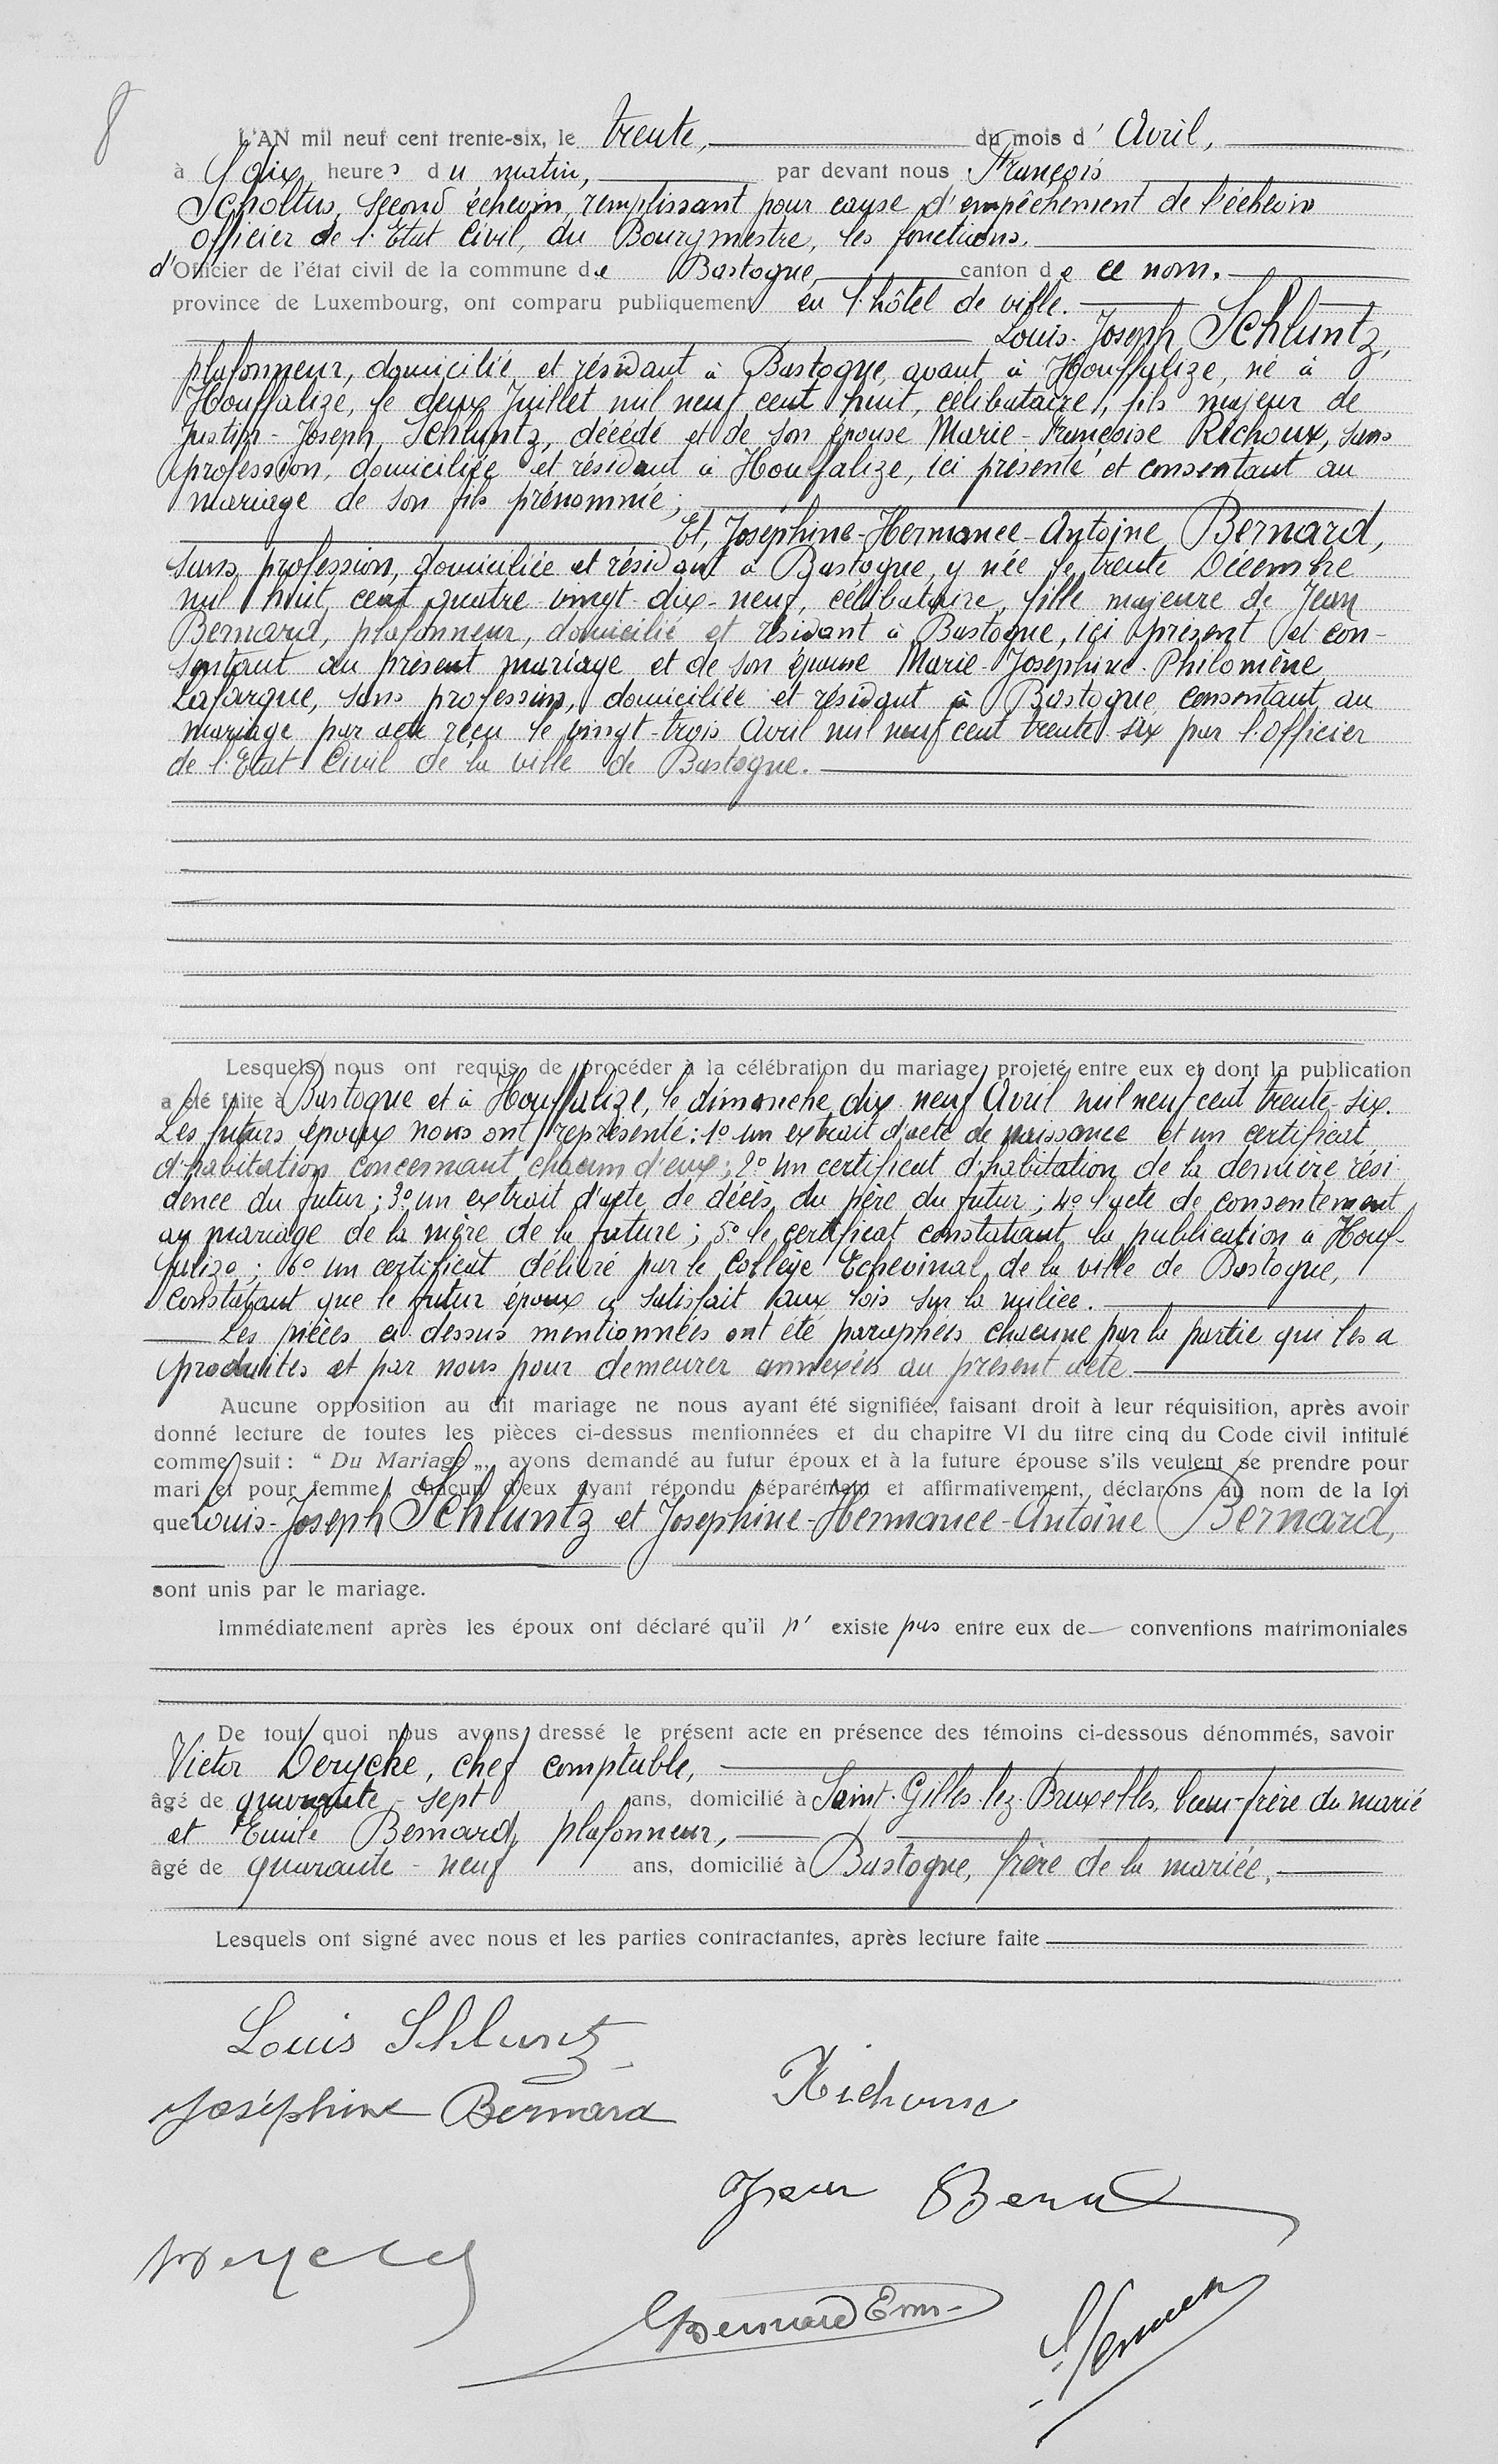 8
L'AN mil neuf cent trente-six, le trente, du mois d' Avril,
à dix heures du matin, par devant nous François
Scholtus, second échevin, remplissant pour cause d'empêchement de l'échevin
officier de l'Etat Civil, du Bourgmestre, les fonctions.
d'Officier de l'état civil de la commune de Bastogne, canton de ce nom.
province de Luxembourg, ont comparu publiquement en l'hôtel de ville.
Louis-Joseph Schluntz,
plafonneur, domicilié et résidant à Bastogne, avant à Houffalize, né à
Houffalize, le deux Juillet mil neuf cent huit, célibataire, fils majeur de
Justin-Joseph Schluntz, décédé et de son épouse Marie-Françoise Richoux, sans
profession, domiciliée et résidant à Houffalize, ici présente et consentant au
mariage de son fils prénommé;
Et, Joséphine-Hermance-Antoine Bernard,
sans profession, domiciliée et résidant à Bastogne, y née le trente Décembre
mil huit cent quatre vingt-dix-neuf, célibataire, fille majeure de Jean
Bernard, plafonneur, domicilié et résidant à Bastogne, ici présent et con-
sentant au présent mariage et de son épouse Marie-Joséphine-Philomène
Lafargue, sans profession, domiciliée et résidant à Bastogne, consentant au
mariage par acte reçu le vingt-trois Avril mil neuf cent trente-six par l'officier
de l'Etat Civil de la ville de Bastogne.
Lesquels nous ont requis de procéder à la célébration du mariage projeté entre eux et dont la publication
a été faite à Bastogne et à Houffalize, le dimanche dix-neuf Avril mil neuf cent trente-six.
Les futurs époux nous ont représenté: 1º un extrait d'acte de naissance et un certificat
d'habitation concernant chacun d'eux; 2º un certificat d'habitation de la dernière rési-
dence du futur; 3º un extrait d'acte de décès du père du futur; 4º l'acte de consentement
au mariage de la mère de la future; 5º le certificat constatant la publication à Houf-
falize; 6º un certificat délivré par le Collège Echevinal de la ville de Bastogne,
constatant que le futur époux a satisfait aux lois sur la milice.
Les pièces ci-dessus mentionnées ont été paraphées chacune par la partie qui les a
produites et par nous pour demeurer annexées au présent acte.
Aucune opposition au dit mariage ne nous ayant été signifiée, faisant droit à leur réquisition, après avoir
donné lecture de toutes les pièces ci-dessus mentionnées et du chapitre VI du titre cinq du Code civil intitulé
comme suit : " Du Mariage „, avons demandé au futur époux et à la future épouse s'ils veulent se prendre pour
mari et pour femme; chacun d'eux ayant répondu séparément et affirmativement, déclarons au nom de la loi
que Louis-Joseph Schluntz et Joséphine-Hermance-Antoine Bernard,
sont unis par le mariage.
Immédiatement après les époux ont déclaré qu'il n' existe pas entre eux de conventions matrimoniales
De tout quoi nous avons dressé le présent acte en présence des témoins ci-dessous dénommés, savoir
Victor Derycke, chef comptable,
âgé de quarante-sept ans, domicilié à Saint-Gilles-lez-Bruxelles, beau-frère du marié
et Emile Bernard, plafonneur,
âgé de quarante-neuf ans, domicilié à Bastogne, frère de la mariée.
Lesquels ont signé avec nous et les parties contractantes, après lecture faite
Louis Schluntz
Joséphine Bernard
Richoux
Jean
Bernard Em